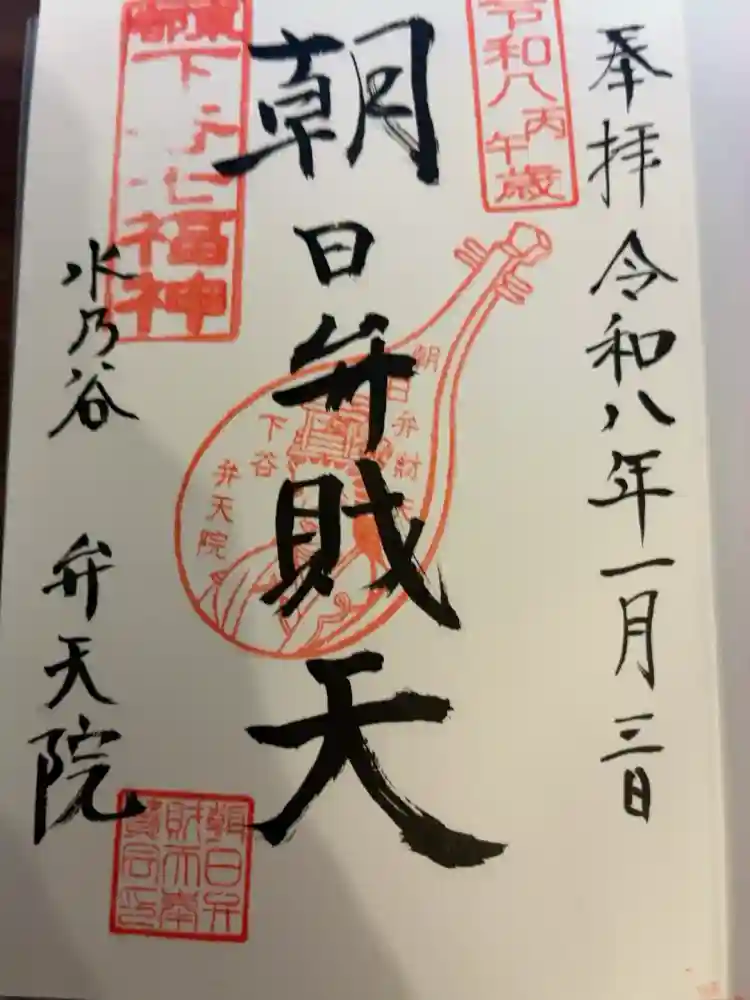 奉拝 令和八年一月三日
令和八丙午歳
朝日弁財天
朝日弁財天
下谷
弁天院
下谷七福神
水乃谷 弁天院
朝日弁
財天奉